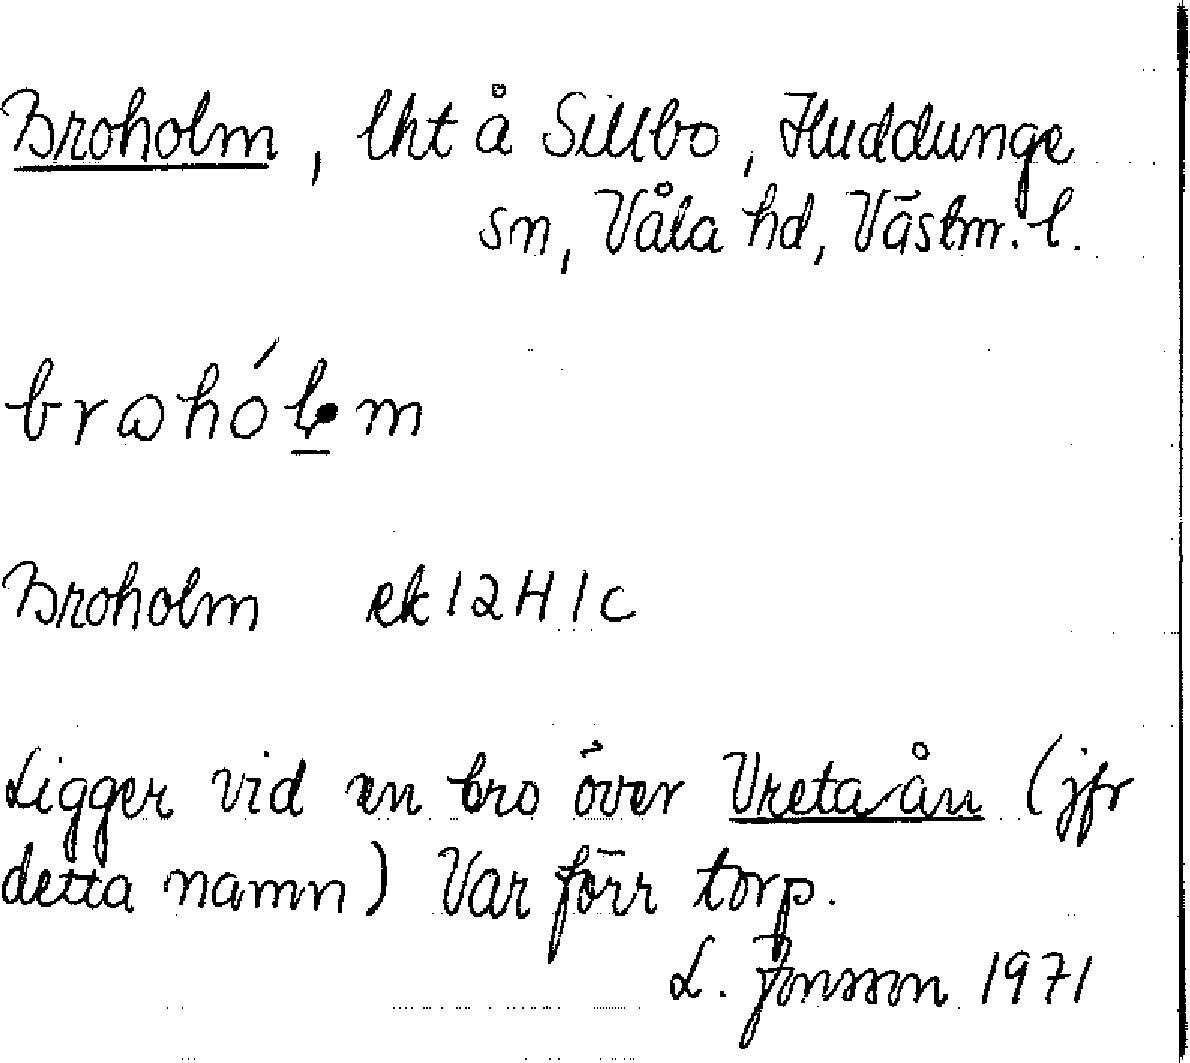 Broholm, lht å Sillbo, Huddunge
sn, Våla hd, Västm. l.
brɷhólm
Broholm ek 12H1c
Ligger vid en bro över Vretaån (jfr
detta namn) Var förr torp.
L. Jonsson 1971